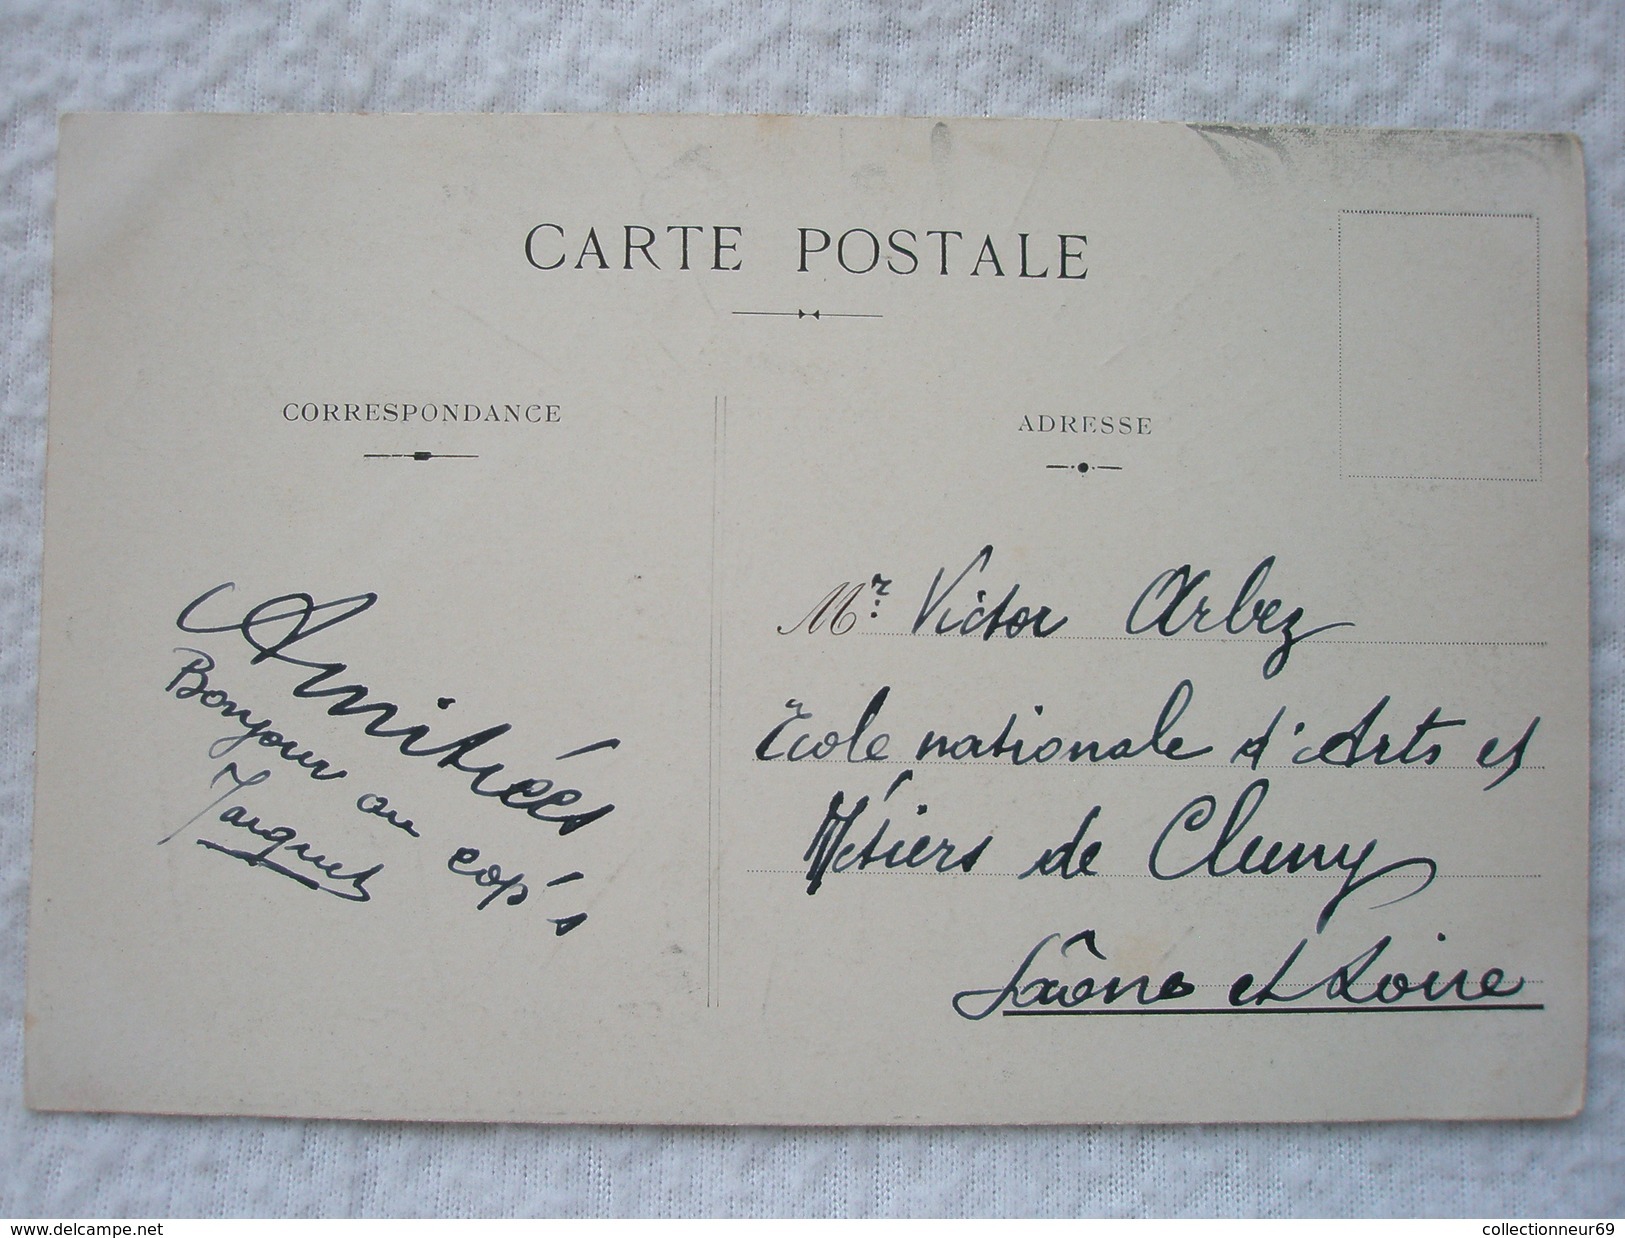 CARTE POSTALE
CORRESPONDANCE
Amitiées
Bonjour au cop's
Jacquet
ADRESSE
Mr. Victor Arbez
École nationale d'Arts et
Métiers de Cluny
Saône et Loire
www.delcampe.net
collectionneur69